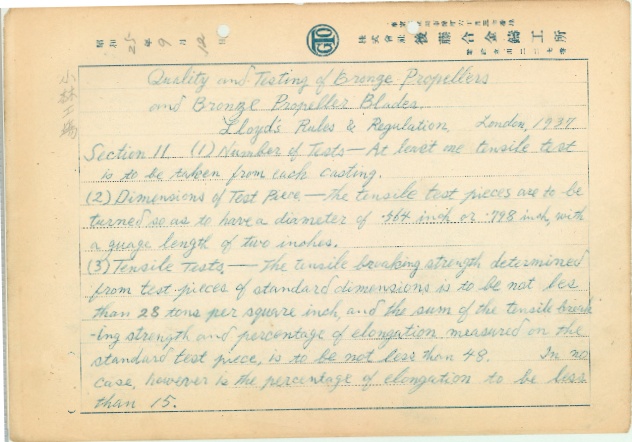 昭和 25 年 9 月 12 日
GTO
株式会社 後藤合金鋳工所
小林工場
Quality and Testing of Bronze Propellers
and Bronze Propeller Blades.
Lloyd's Rules & Regulation, London, 1937
Section 11 (1) Number of Tests — At least one tensile test
is to be taken from each casting.
(2) Dimensions of Test Piece. — The tensile test pieces are to be
turned so as to have a diameter of .564 inch or .798 inch, with
a guage length of two inches.
(3) Tensile Tests, — The tensile breaking strength determined
from test pieces of standard dimensions is to be not less
than 28 tons per square inch, and the sum of the tensile break
-ing strength and percentage of elongation measured on the
standard test piece, is to be not less than 48. In no
case, however is the percentage of elongation to be less
than 15.